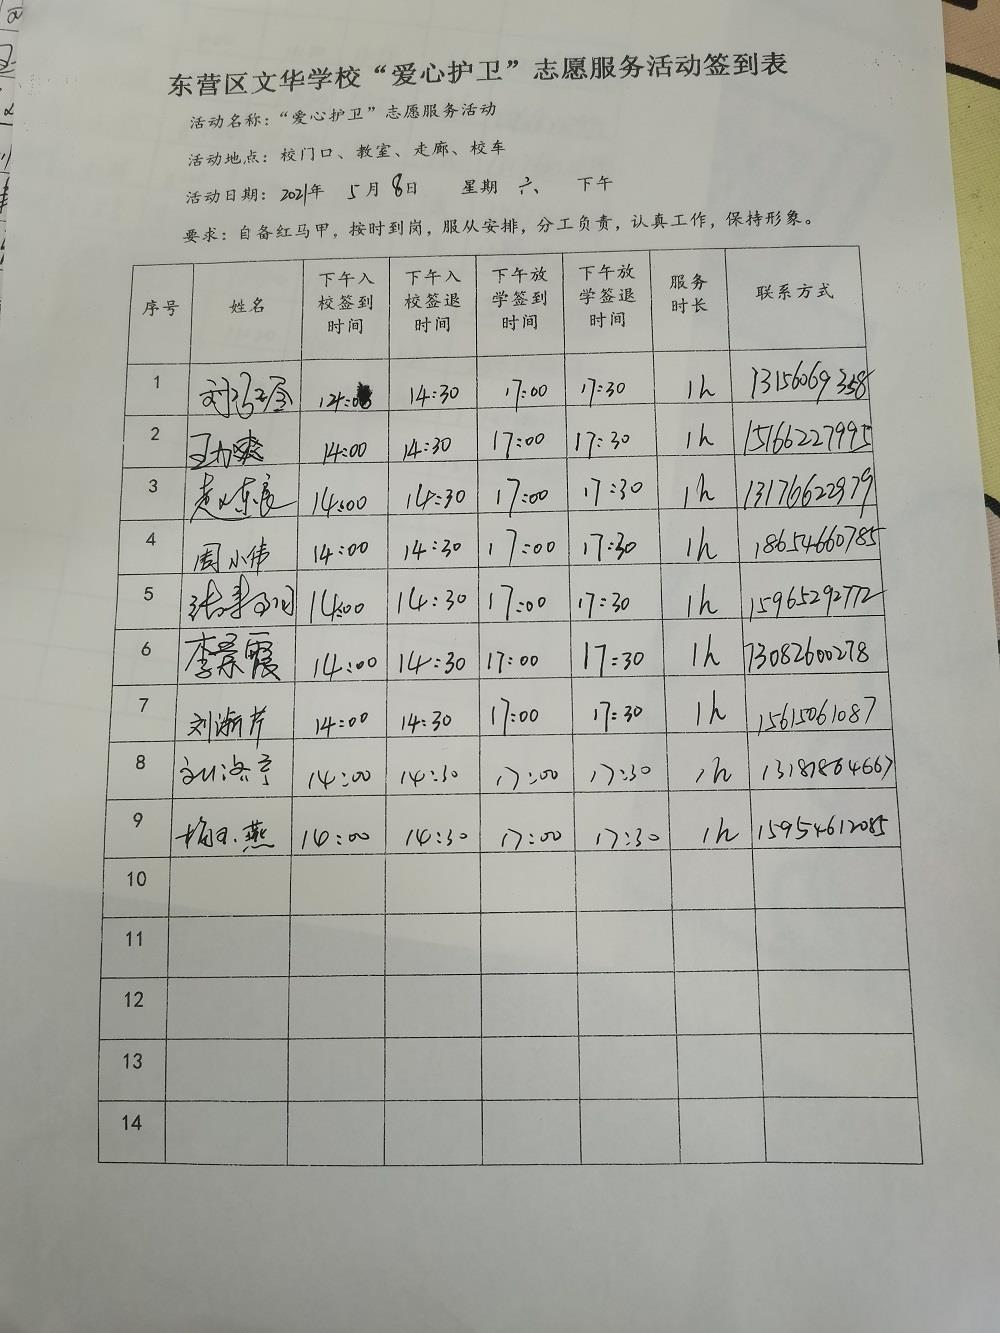 东营区文华学校“爱心护卫”志愿服务活动签到表
活动名称：“爱心护卫”志愿服务活动
活动地点：校门口、教室、走廊、校车
活动日期：2021年 5月8日 星期 六 下午
要求：自备红马甲，按时到岗，服从安排，分工负责，认真工作，保持形象。
序号 姓名 下午入校签到时间 下午入校签退时间 下午放学签到时间 下午放学签退时间 服务时长 联系方式
1 14:30 17:00 17:30 1h 13156069358
2 14:00 14:30 17:00 17:30 1h 15166227995
3 14:00 14:30 17:00 17:30 1h 13176622979
4 周小伟 14:00 14:30 17:00 17:30 1h 18654660785
5 14:00 14:30 17:00 17:30 1h 15965292772
6 李景霞 14:00 14:30 17:00 17:30 1h 13082600278
7 14:00 14:30 17:00 17:30 1h 15615061087
8 14:00 14:30 17:00 17:30 1h 13181864667
9 14:00 14:30 17:00 17:30 1h 15954612085
10
11
12
13
14